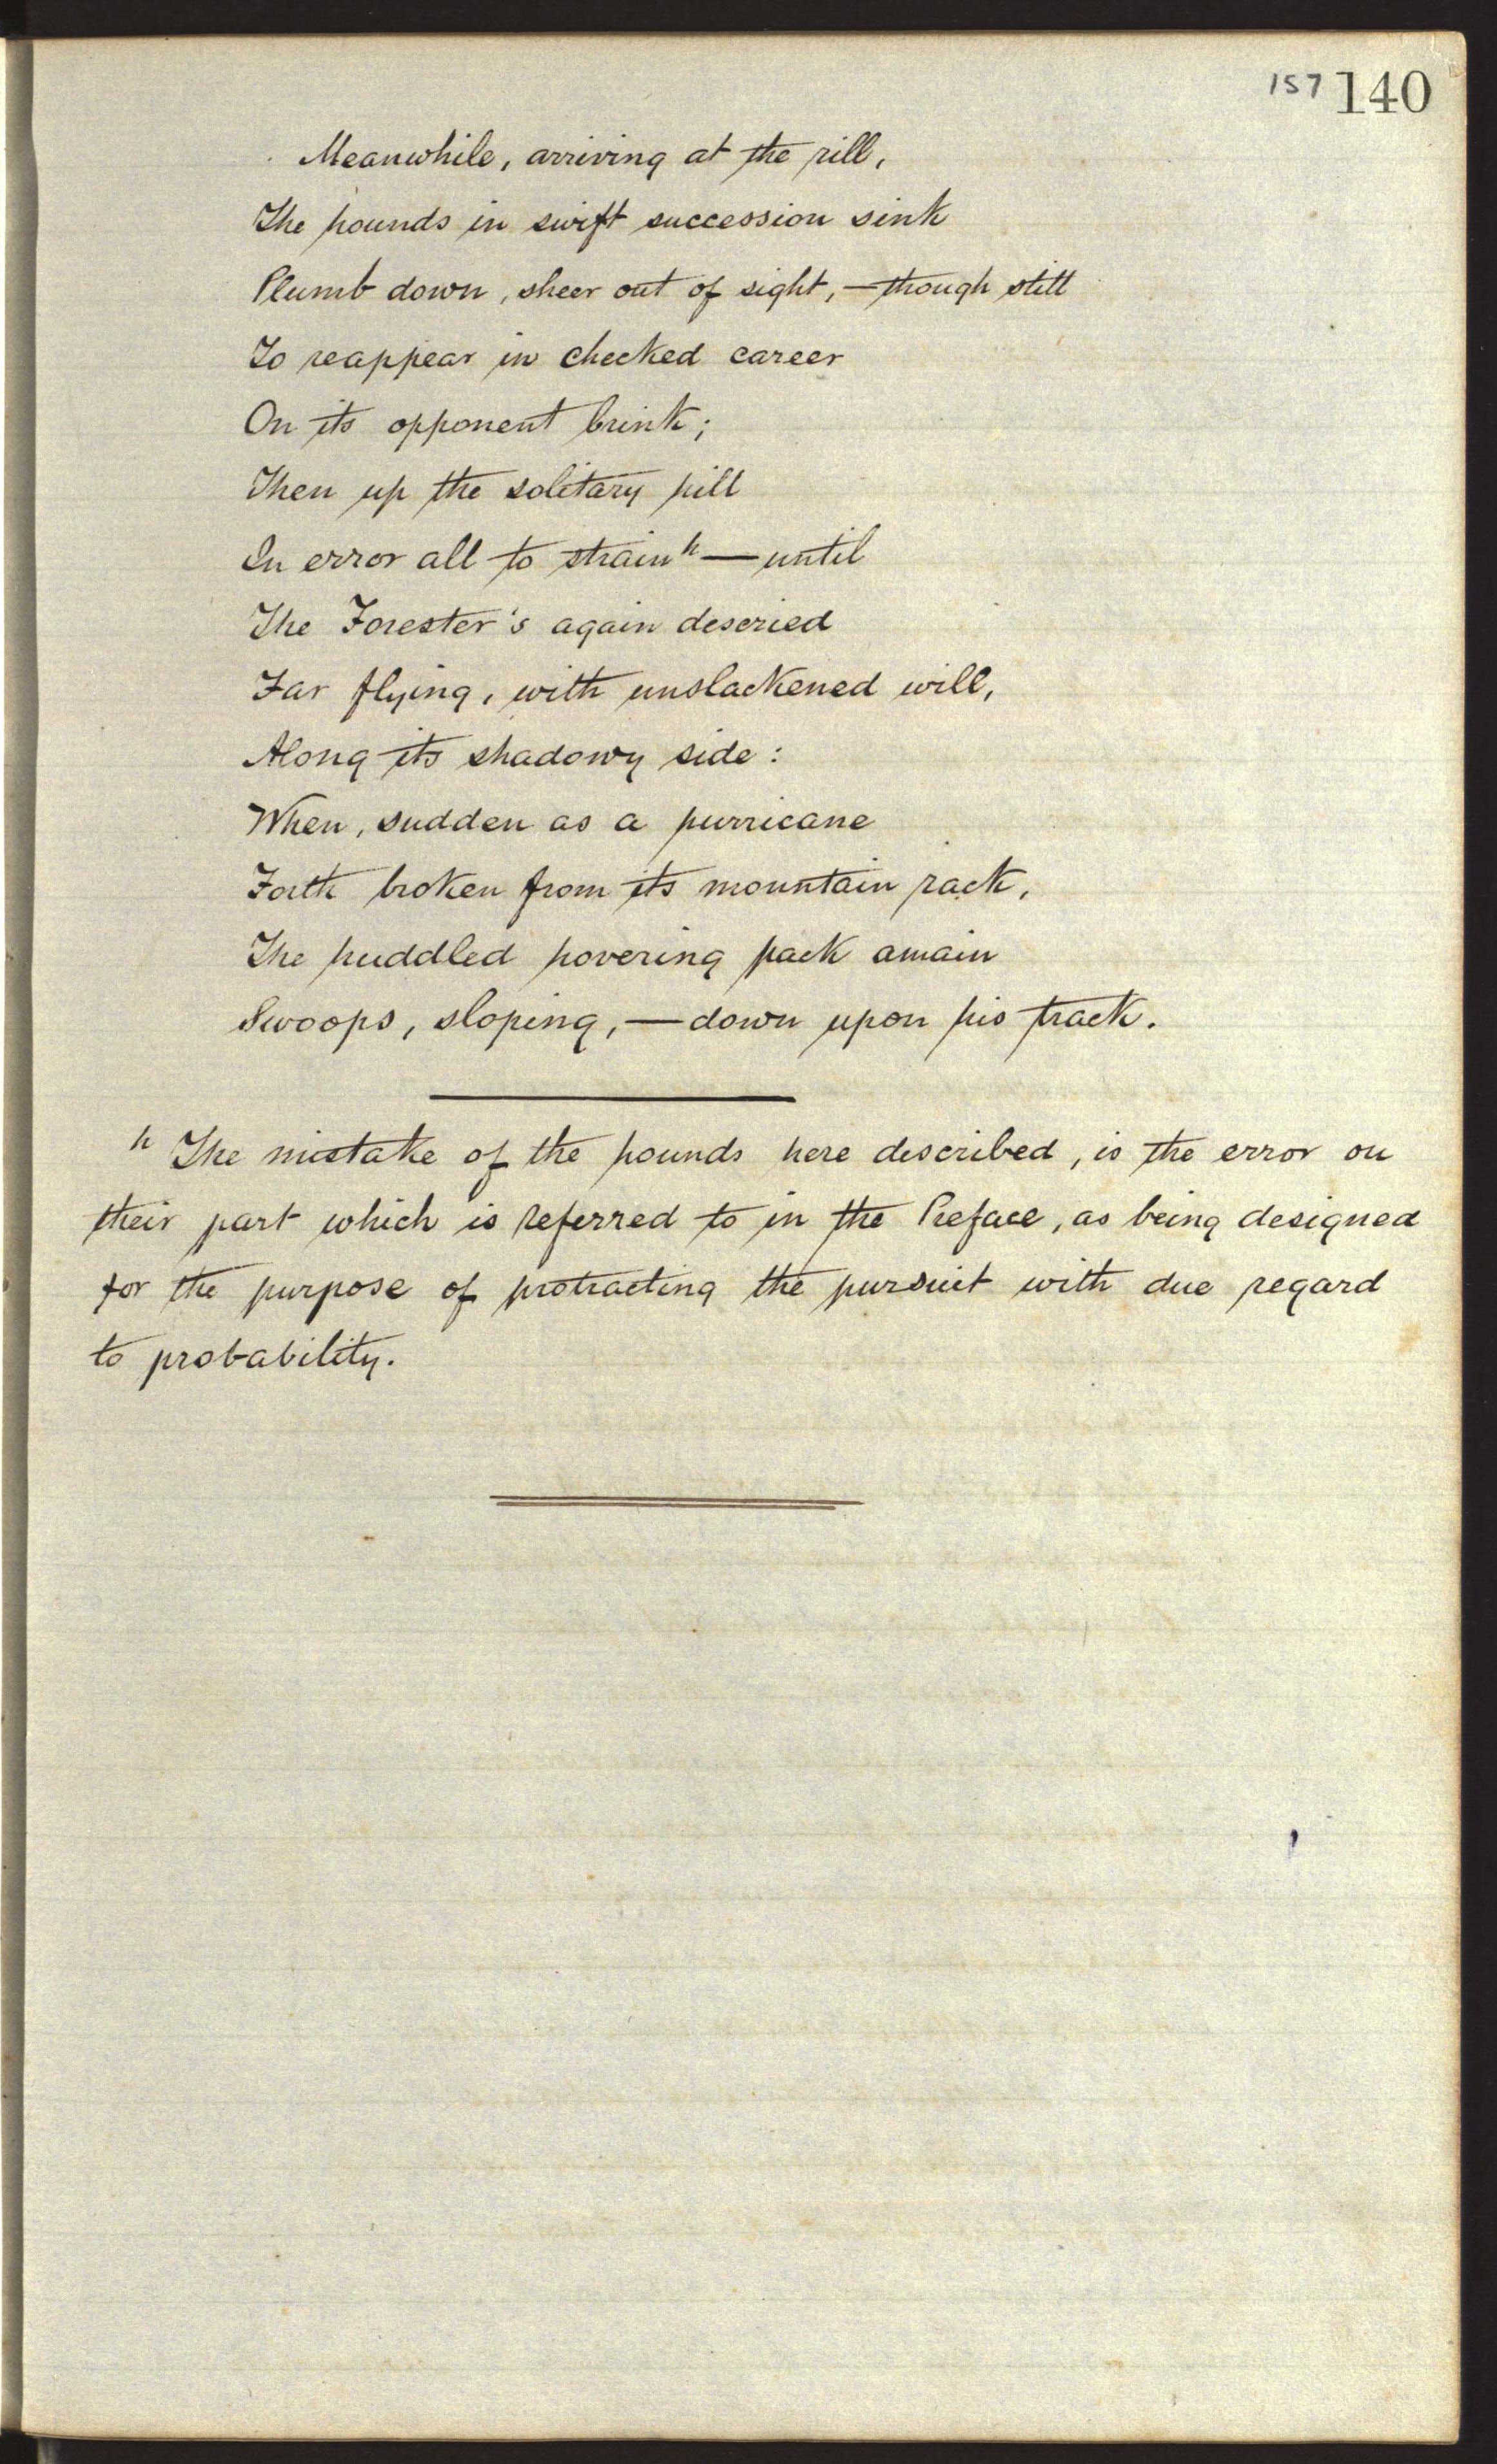 157 140
Meanwhile, arriving at the rill,
The hounds in swift succession sink
Plumb down, sheer out of sight,—though still
To reappear in checked career
On its opponent brink;
Then up the solitary hill
In error all to strain h—until
The Forester's again descried
Far flying, with unslackened will,
Along its shadowy side:
When, sudden as a hurricane
Forth broken from its mountain rack,
The huddled hovering pack amain
Swoops, sloping,—down upon his track.
h The mistake of the hounds here described, is the error on
their part which is referred to in the Preface, as being designed
for the purpose of protracting the pursuit with due regard
to probability.